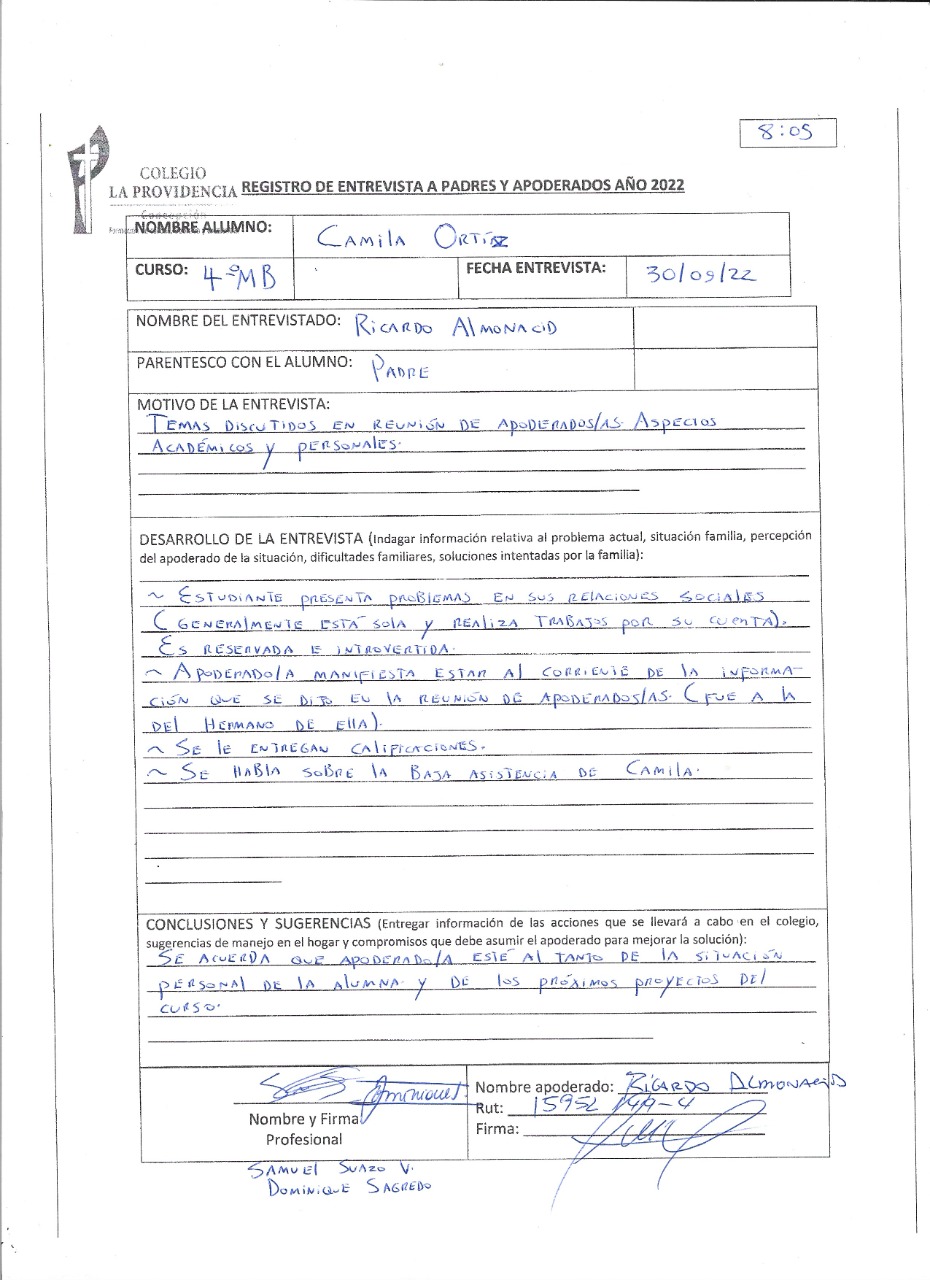 8:05
COLEGIO
LA PROVIDENCIA
Concepción
REGISTRO DE ENTREVISTA A PADRES Y APODERADOS AÑO 2022
NOMBRE ALUMNO: CAMILA ORTÍZ
CURSO: 4°MB FECHA ENTREVISTA: 30/09/22
NOMBRE DEL ENTREVISTADO: RICARDO ALMONACID
PARENTESCO CON EL ALUMNO: PADRE
MOTIVO DE LA ENTREVISTA:
TEMAS DISCUTIDOS EN REUNIÓN DE APODERADOS/AS. ASPECTOS
ACADÉMICOS Y PERSONALES.
DESARROLLO DE LA ENTREVISTA (Indagar información relativa al problema actual, situación familia, percepción
del apoderado de la situación, dificultades familiares, soluciones intentadas por la familia):
~ ESTUDIANTE PRESENTA PROBLEMAS EN SUS RELACIONES SOCIALES
(GENERALMENTE ESTÁ SOLA Y REALIZA TRABAJOS POR SU CUENTA).
ES RESERVADA E INTROVERTIDA.
~ APODERADO/A MANIFIESTA ESTAR AL CORRIENTE DE LA INFORMA-
CIÓN QUE SE DIJO EN LA REUNIÓN DE APODERADOS/AS. (FUE A LA
DEL HERMANO DE ELLA).
~ SE LE ENTREGAN CALIFICACIONES.
~ SE HABLA SOBRE LA BAJA ASISTENCIA DE CAMILA.
CONCLUSIONES Y SUGERENCIAS (Entregar información de las acciones que se llevará a cabo en el colegio,
sugerencias de manejo en el hogar y compromisos que debe asumir el apoderado para mejorar la solución):
SE ACUERDA QUE APODERADO/A ESTÉ AL TANTO DE LA SITUACIÓN
PERSONAL DE LA ALUMNA Y DE LOS PRÓXIMOS PROYECTOS DEL
CURSO.
Dominique S.
Nombre y Firma
Profesional
Nombre apoderado: RICARDO ALMONACID
Rut: 15952 199-4
Firma:
SAMUEL SUAZO V.
DOMINIQUE SAGREDO